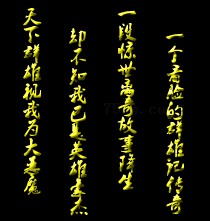 一个看脸的群雄记传奇
一段惊世虐奇故事降生
却不知我已是英雄豪杰
天下群雄视我为大恶魔